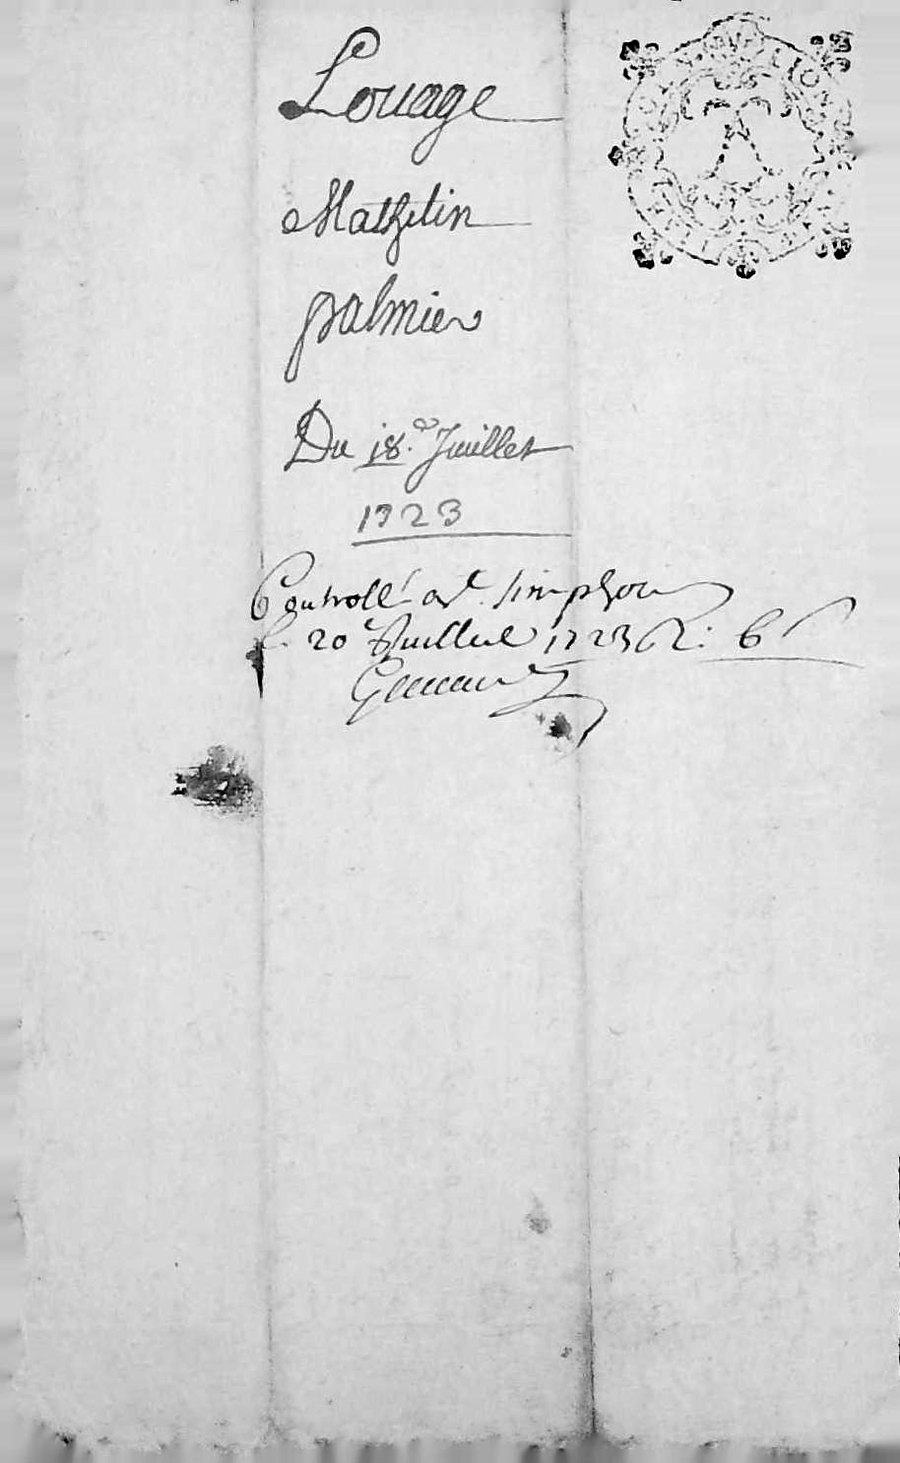 Louage
Mathelin
palmier
Du 18.e Juillet
1723
Controllé a St. simphorien
le 20 Juillet 1723 R: 6 s